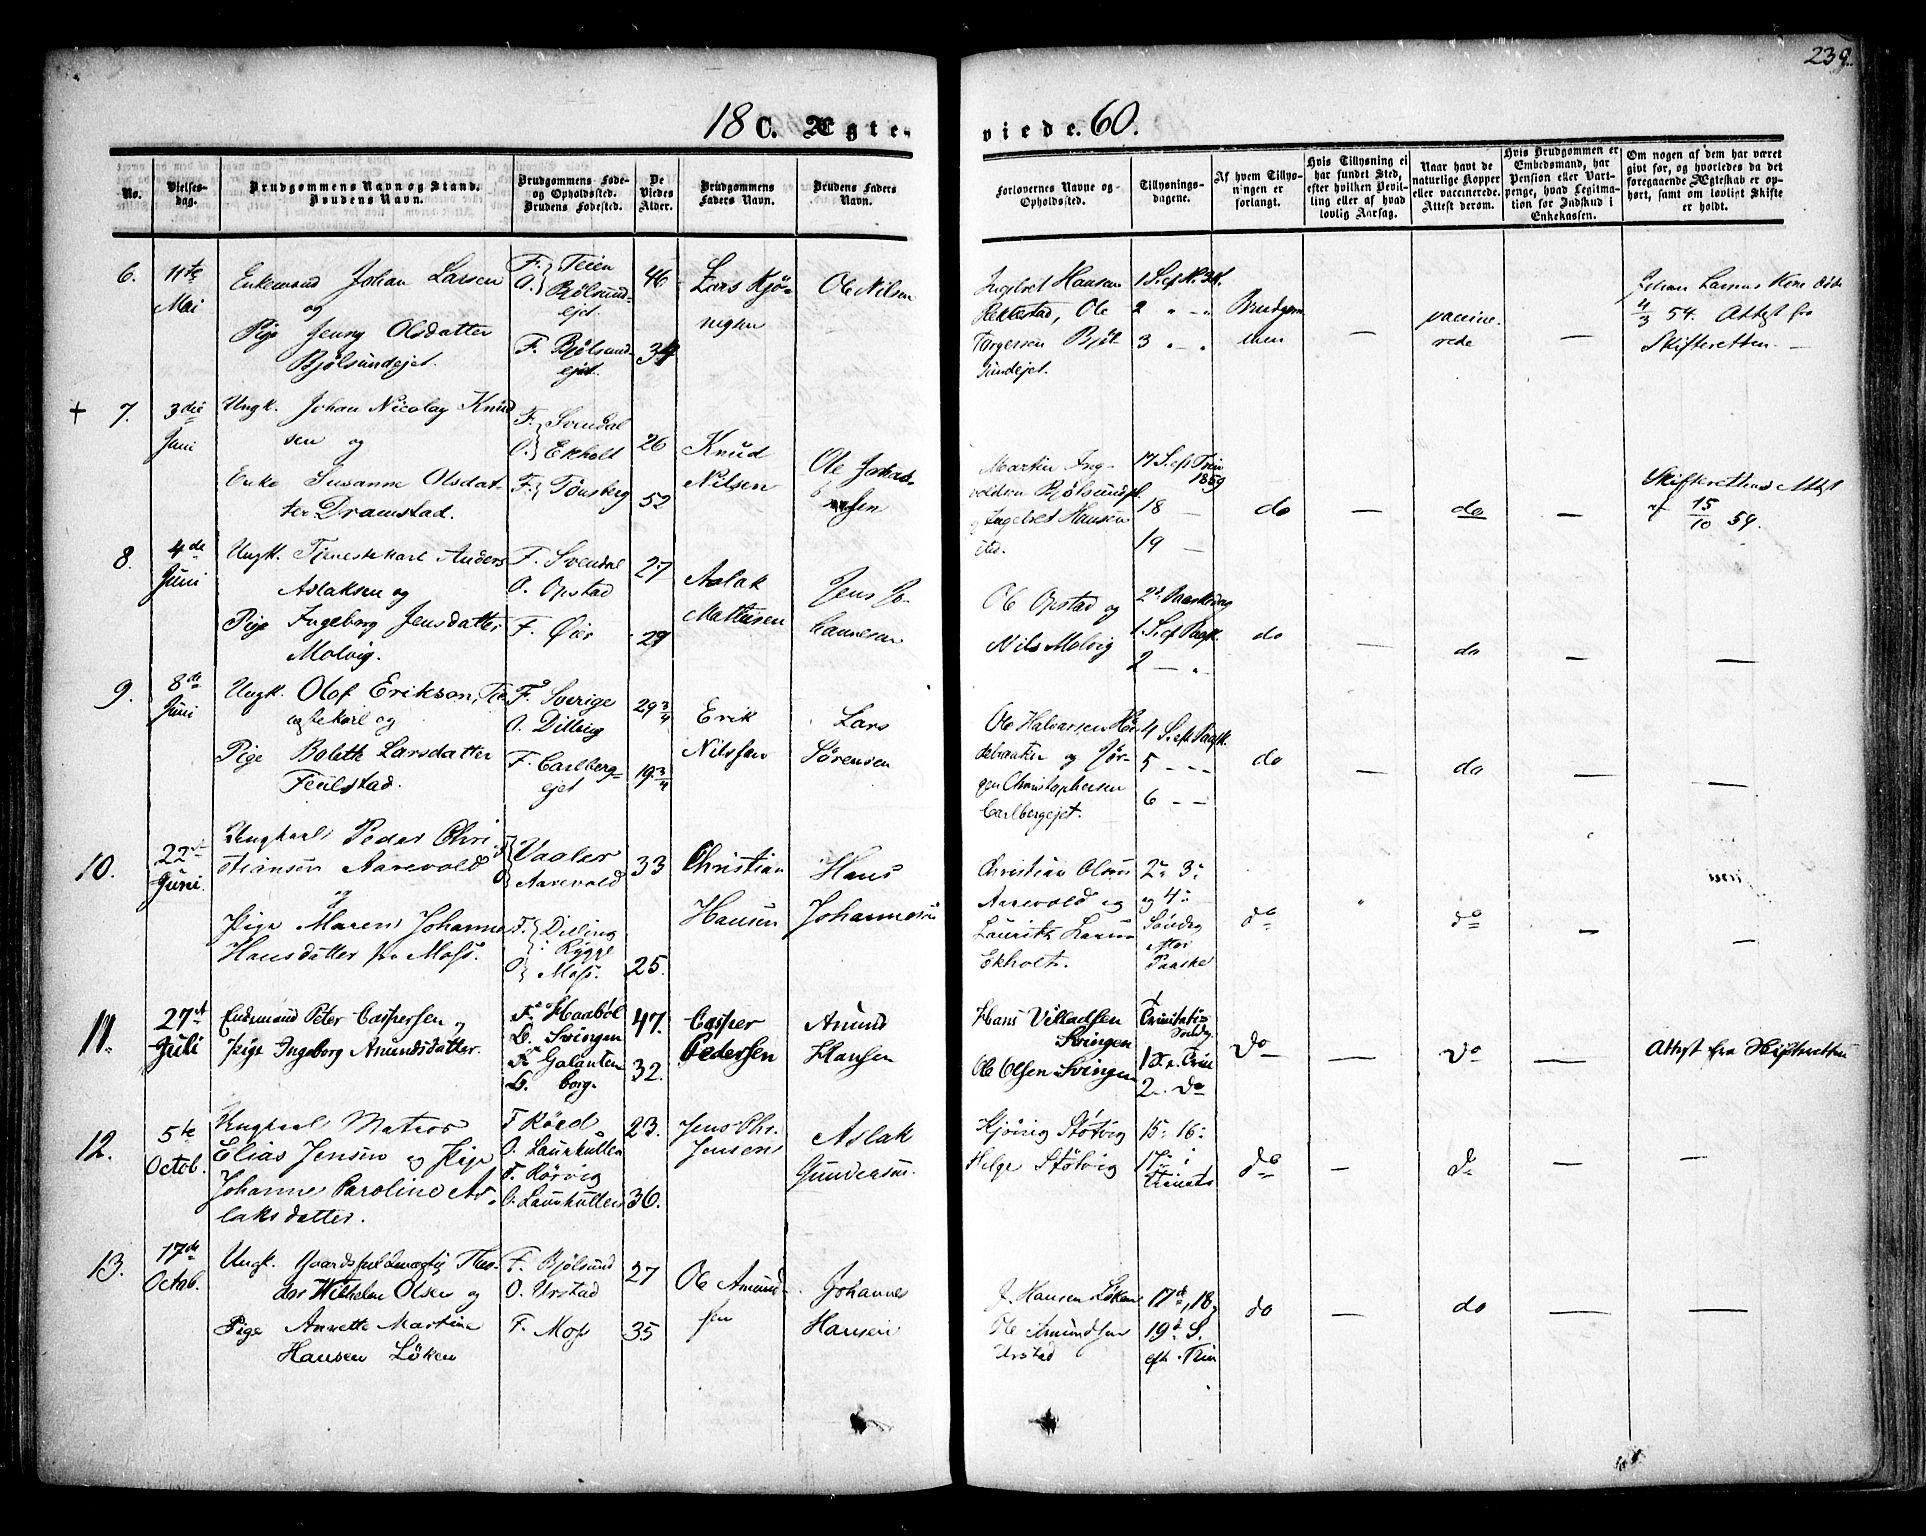 239.
18 C. Ægteviede. 60.
No.
Vielsesdag.
Brudgommens Navn og Stand.
Brudens Navn.
Brudgommens Føde- og Opholdssted.
Brudens Fødested.
De Viedes Alder.
Brudgommens Faders Navn.
Brudens Faders Navn.
Forlovernes Navne og Opholdssted.
Tillysningsdagene.
Af hvem Tillysningen er forlangt.
Hvis Tillysning ei har fundet Sted, efter hvilken Bevilling eller af hvad lovlig Aarsag.
Naar havt de naturlige Kopper eller vaccinerede. Attest derom.
Hvis Brudgommen er Embedsmand, har Pension eller Vartpenge, hvad Legitimation for Indskud i Enkekassen.
Om nogen af dem har været givt før, og hvorledes da det foregaaende Ægteskab er ophørt, samt om lovligt Skifte er holdt.
6. 11te Mai
Enkemand Johan Larsen
og
Pige Jenny Olsdatter
Bjølsundejet.
F. Teien
O. Bjølsundejet
F. Bjølsundejet.
46
34
Lars Kjønigsen
Ole Nilsen
Ingebret Hansen
Rekkestad, Ole
Torgersen Bjølsundejet.
1 S. ef. N. Aar.
2 " — "
3 " — "
Brudgommen
—
vaccinerede
—
Johan Larsens Kone døde
4/3 54. Attest fra
Skifteretten. —
+ 7. 3die Juni
Ungk. Johan Nicolay Knudsen og
Enke Susanne Olsdatter Dramstad.
F. Svendal
O. Ekholt
F. Tønsberg
26
52
Knud
Nilsen
Ole Johannesen
Martin Ingvoldsen Bjølsundejet.
og Ingebret Hansen
17 S. ef. Trin 1859
18 —
19 —
do
—
do
—
Skifterettens Attest
af 15/10 59.
8. 4de Juni
Ungk. Tjenestekarl Anders
Aslaksen og
Pige Ingeborg Jensdatter
Molvig.
F. Svendal
O. Opstad
F. Øer
27
29
Aslak
Mathisen
Jens Johannesen
Ole Opstad og
Nils Molvig
2d Paaskedag
1 S. ef. Paask.
2 — "
do
—
do
—
—
9. 8de Juni
Ungk. Olof Erikson, Tjenestekarl og
Pige Bolette Larsdatter
Feulstad.
F. Sverige
O. Dilling
F. Carlbergejet
29 3/4
19 3/4
Erik
Nilssen
Lars
Sørensen
Ole Halvorsen
og Jørgen Christophersen
Carlbergejet.
4 S. eft. Paask.
5 — —
6 — —
do
—
do
—
—
10. 22de Juni.
Ungkarl Peder Christiansen Aarevold
og
Pige Maren Johanne
Hansdatter fra Moss.
F. Vaaler
O. Aarevold
F. Dilling
Rygge
O. Moss.
33
25.
Christian
Hansen
Hans
Johannesen
Christian Olsen
Aarevold og
Laurits Larsen
Ekholt.
2. 3.
og 4.
Søndag
efter
Paaske
do
"
do
—
—
11. 27de Juli
Enkemand Peter Caspersen og
Pige Ingeborg Amundsdatter.
F. Haabøl
O. Svingen
F. Galantenborg.
47.
32.
Casper
Pedersen
Amund
Hansen
Hans Villadsen
Svingen
Ole Olsen Svingen
Trinitatis Søndag
1 S. e. Trin
2. do
Do
—
Do
—
Attest fra Skifteretten
12. 5te Octob.
Ungkarl Matros
Elias Jensen og Pige
Johanne Caroline Aslaksdatter.
F. Rörd
O. Laurkullen
F. Rörvig
O. Laurkullen
23.
36.
Jens Chr.
Jensen
Aslak
Gundersen.
Hjöring Støtvig
Helge Støtvig
15. 16.
17. i
Trinit.
do
—
do
—
—
13. 17de Octob.
Ungk. Gaardsfuldmægtig Theodor Wilhelm Olsen og
Pige Annette Martine
Hansen Løken
F. Bjølsund
O. Urstad
F. Moss
27
35
Ole Amundsen
Johannes
Hansen
J. Hansen Løken
Ole Amundsen
Urstad
17de, 18,
19de S.
eft. Trin
do
—
do
—
—